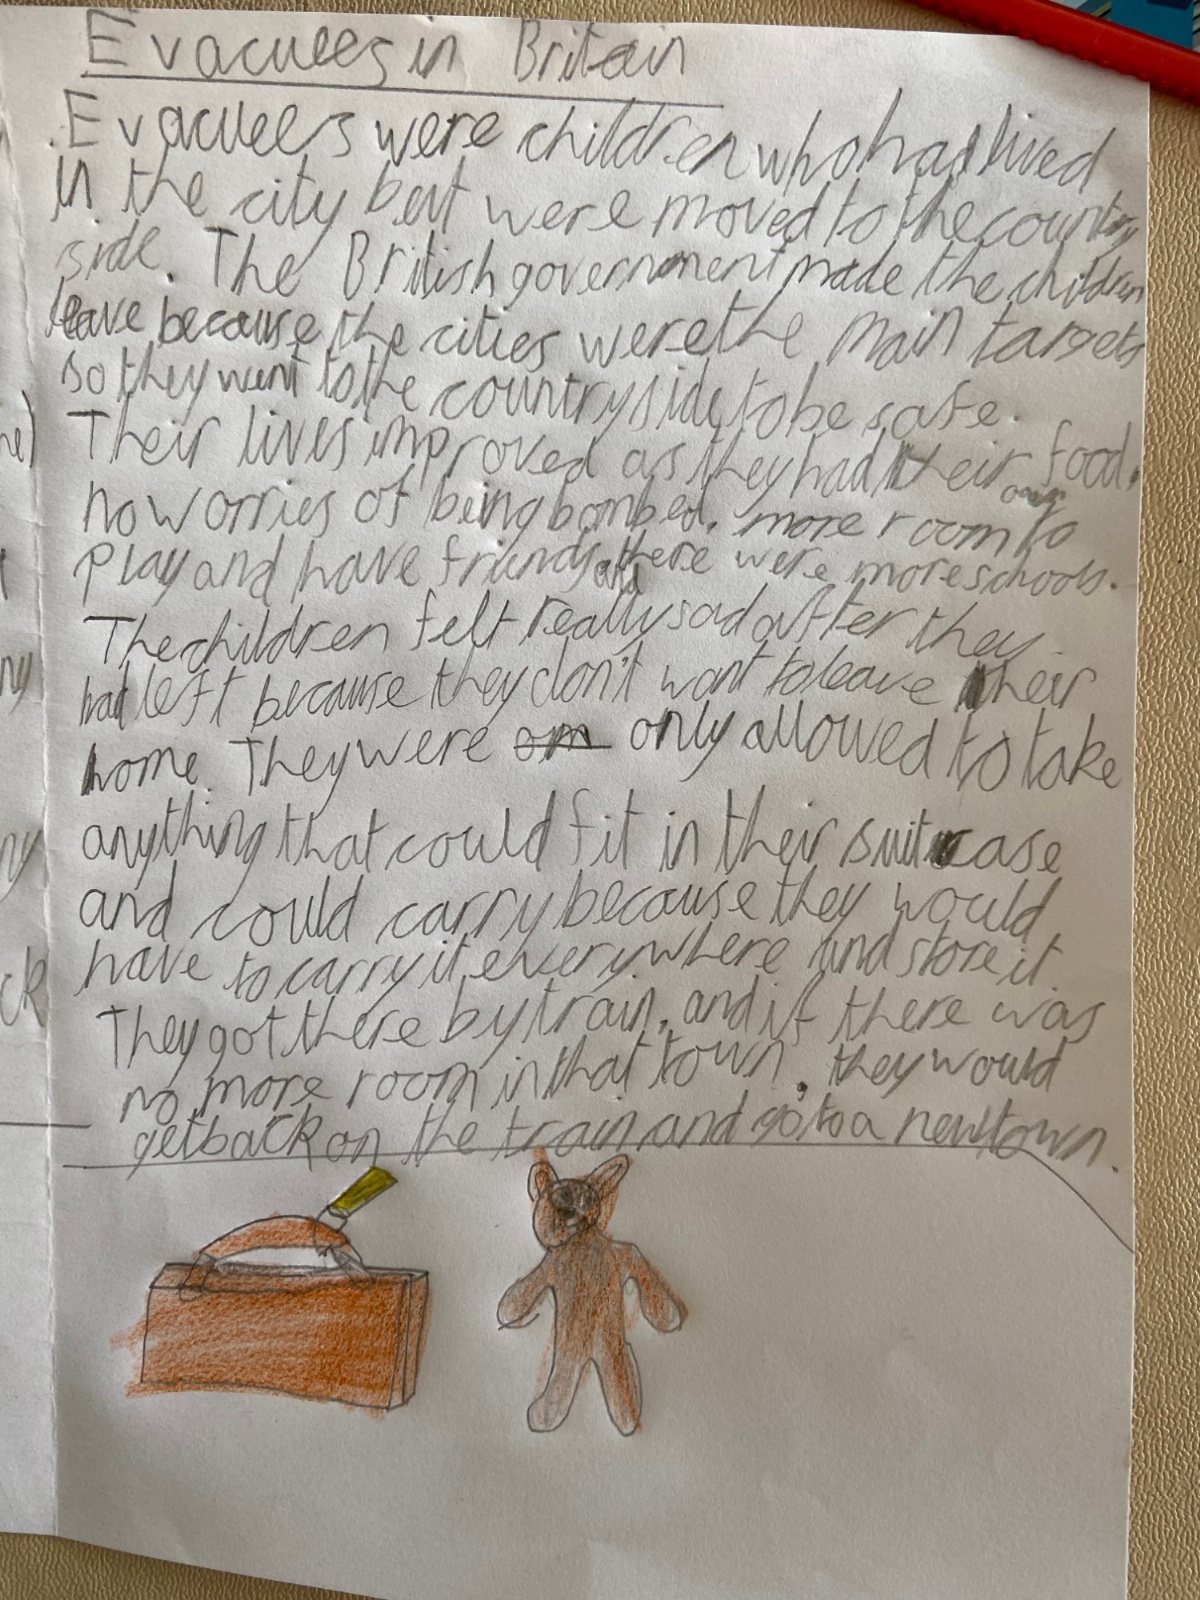 Evacuees in Britain
Evacuees were children who had lived
in the city but were moved to the country
side. The British government made the children
leave because the cities were the main targets
so they went to the countryside, to be safe.
Their lives improved as they had their own food,
no worries of being bombed, more room to
play and have friends and there were more schools.
The children felt really sad after they
had left because they don't want to leave their
home. They were om only allowed to take
anything that could fit in their suitcase
and could carry because they would
have to carry it everywhere and store it.
They got there by train, and if there was
no more room in that town, they would
get back on the train and go to a new town.
ne)
ny
ny
ck